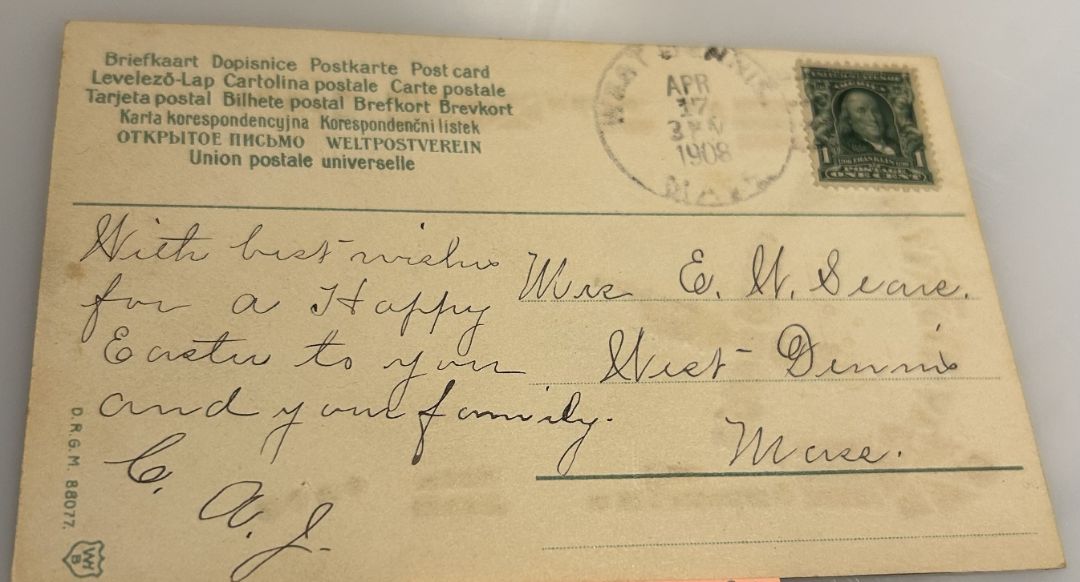 Briefkaart Dopisnice Postkarte Post card
Levelező-Lap Cartolina postale Carte postale
Tarjeta postal Bilhete postal Brefkort Brevkort
Karta korespondencyjna Korespondenční listek
ОТКРЫТОЕ ПИСЬМО WELTPOSTVEREIN
Union postale universelle
WEST DENNIS
APR
17
1908
MASS
UNITED STATES OF AMERICA
1 1
FRANKLIN
POSTAGE
ONE CENT
With best wishes
for a Happy
Easter to you
and your family.
C. A. J.
Mrs E. W. Sears.
West Dennis
Mass.
D.R.G.M. 88077.
W
B